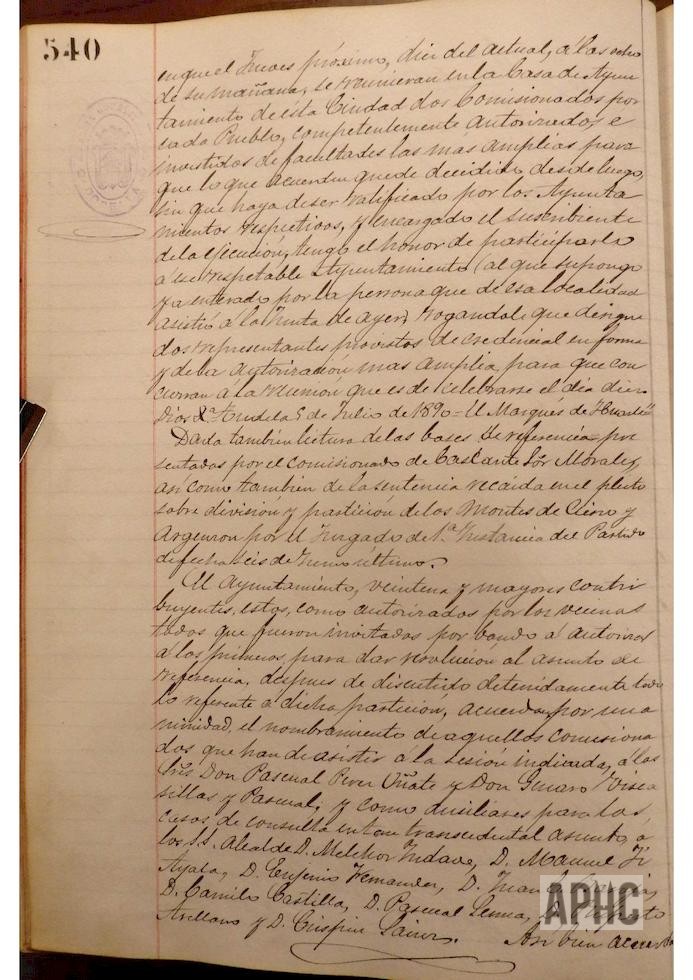 540
en que el Jueves próximo, diez del actual, á las ocho
de su mañana, se reunieran en la Casa de Ayun
tamiento de ésta Ciudad dos Comisionados por
cada Pueblo, competentemente autorizados e
investidos de facultades las mas amplias para
que lo que acuerden quede decidido desde luego,
sin que haya de ser ratificado por los Ayunta
mientos respectivos, y encargado el suscribiente
de la ejecución, tengo el honor de participarlo
á ese respetable Ayuntamiento (al que supongo
ya enterado por la persona que de esa localidad
asistió á la Junta de ayer) rogandole que designe
dos representantes provistos de credencial en forma
y de la autorización mas amplia, para que con
curran á la reunión que es de celebrarse el día diez
Dios &ª Tudela 5 de Julio de 1890 = El Marqués de Huarte"
Dada tambien lectura de las bases de referencia pre
sentadas por el comisionado de Cascante Sor Morales,
asi como tambien de la sentencia recaída en el pleito
sobre división y partición de los Montes de Cierzo y
Argenzon por el Juzgado de 1ª Instancia del Partido
de fecha seis de Junio último.
El Ayuntamiento, veintena y mayores contri
buyentes, estos, como autorizados por los vecinos
todos que fueron invitados por bando á autorizar
á los primeros para dar resolución al asunto de
referencia, despues de discutido detenidamente todo
lo referente a dicha partición, acuerdan por una
nimidad, el nombramiento de aquellos comisiona
dos que han de asistir á la sesión indicada, á los
Sres Don Pascual Perez Oñate y Don Genaro
sillas y Pascual, y como auxiliares para los
casos de consulta en tan trascedental asunto, a
los S.S. Alcalde D. Melchor Indave, D. Manuel
Ayala, D. Eugenio Fernandez, D. Juan
D. Camilo Castilla, D. Pascual
Arellano y D. Crispin Sainz. Asi bien acuerda
APHC